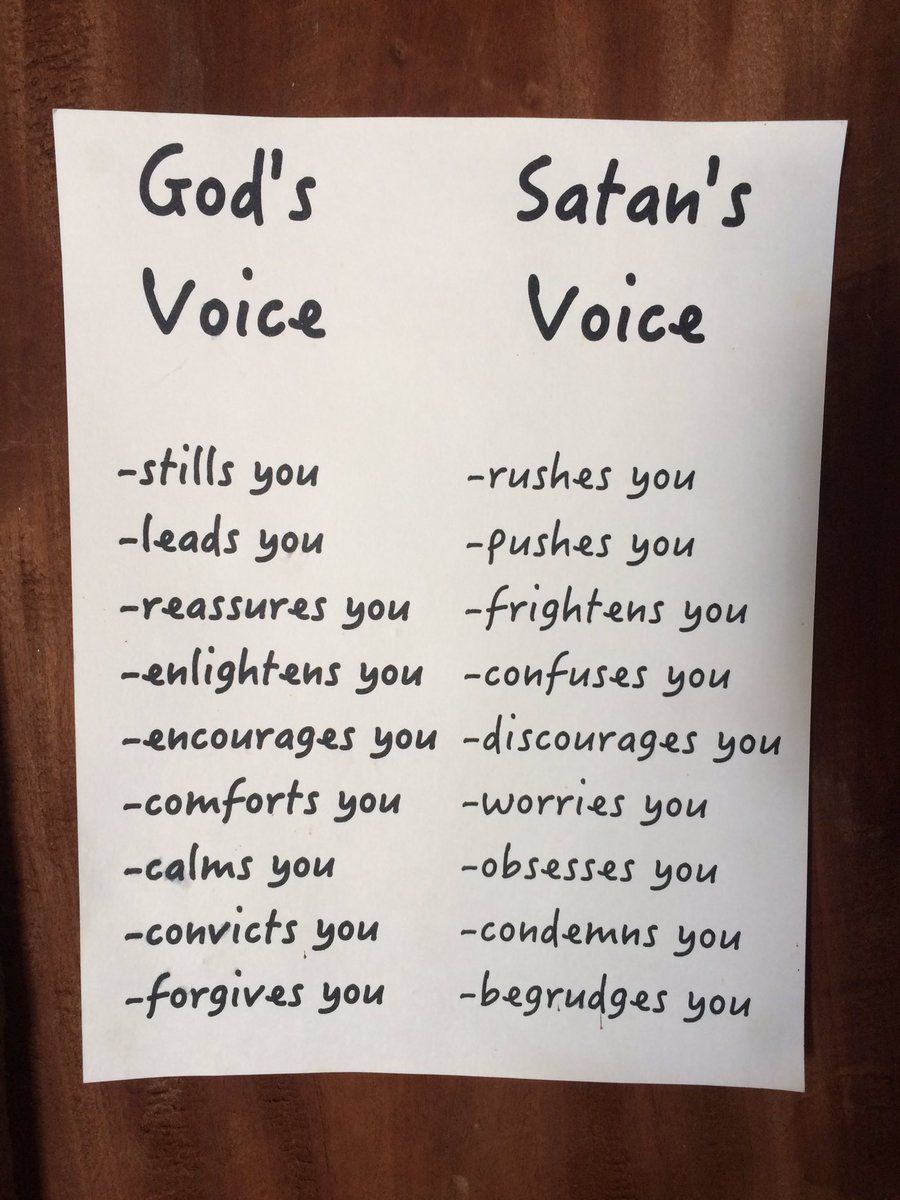 God's
Voice
-stills you
-leads you
-reassures you
-enlightens you
-encourages you
-comforts you
-calms you
-convicts you
-forgives you
Satan's
Voice
-rushes you
-pushes you
-frightens you
-confuses you
-discourages you
-worries you
-obsesses you
-condemns you
-begrudges you